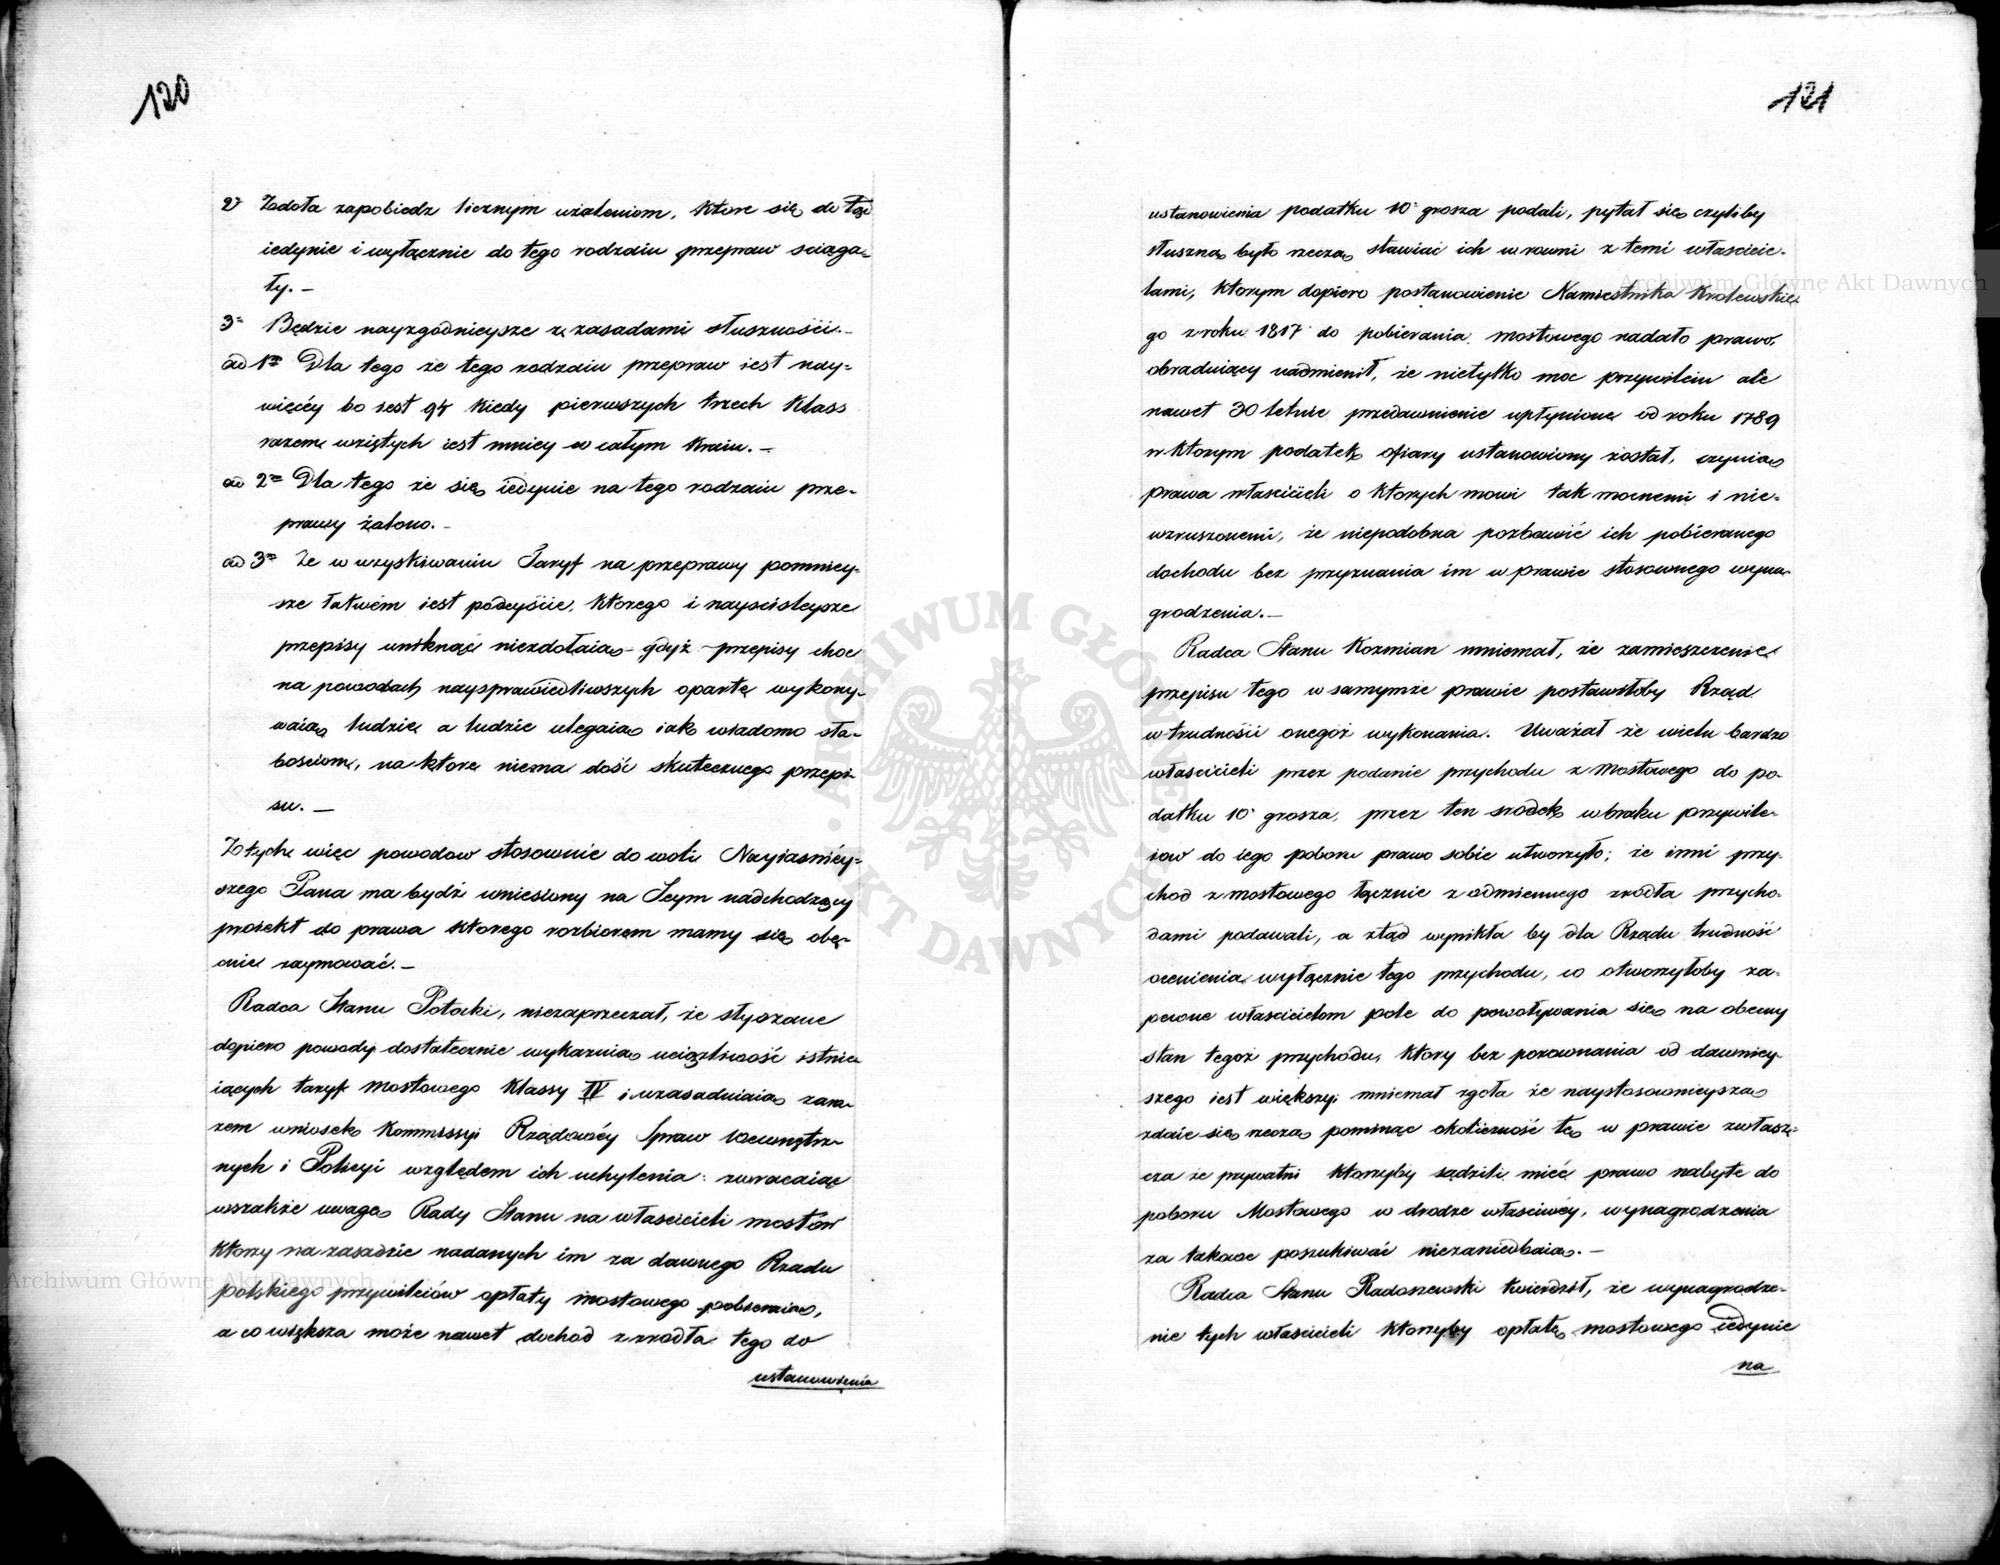 120
2° Zdoła zapobiedz licznym użaleniom, które się do tąd
iedynie i wyłącznie do tego rodzaiu przepraw sciąga-
ły. –
3° Będzie nayzgodnieysze z zasadami słuszności. –
ad 1m Dla tego że tego rodzaiu przepraw iest nay-
więcéy bo iest 94 kiedy pierwszych trzech Klass
razem wziętych iest mniey w całym Kraiu. –
ad 2m Dla tego że się iedynie na tego rodzaiu prze-
prawy żalono. –
ad 3m Że w uzyskiwaniu Taryf na przeprawy pomniey-
sze łatwém iest podeyście, którego i nayściśleysze
przepisy uniknąć niezdołaią – gdyż przepisy choć
na powodach naysprawiedliwszych oparte wykony-
waią ludzie a ludzie ulegaią iak wiadomo sła-
bościom, na które niema dość skutecznego przepi-
su. –
Z tych więc powodow stosownie do woli Nayiaśniéy-
szego Pana ma bydź wniesiony na Seym nadchodzący
proiekt do prawa którego rozbiorem mamy się obe-
cnie zaymować. –
Radca Stanu Potocki, niezaprzeczał, że słyszane
dopiero powody dostatecznie wykazuią uciążliwość istnie-
iących taryf mostowego Klassy IV i uzasadniaią zara-
zem wniosek Kommissyi Rządowéy Spraw Wewnętrz-
nych i Policyi względem ich uchylenia: zwracaiąc
wszakże uwagę Rady Stanu na właścicieli mostów
którzy na zasadzie nadanych im za dawnego Rządu
polskiego przywileiów opłaty mostowego pobieraią,
a co większa może nawet dochod z zrodła tego do
ustanowienia
121
ustanowienia podatku 10° grosza podali, pytał się czyliby
słuszną było rzeczą stawiać ich w rowni z temi właścicie-
lami, którym dopiero postanowienie Namiestnika Krolewskie-
go z roku 1817 do pobierania mostowego nadało prawo,
obraduiący nadmienił, że nietylko moc przywileiu ale
nawet 30 letnie przedawnienie upłynione od roku 1789
w którym podatek ofiary ustanowiony został, czynią
prawa właścicieli o których mowi tak mocnemi i nie-
wzruszonemi, że niepodobna pozbawić ich pobieranego
dochodu bez przyznania im w prawie stosownego wyna-
grodzenia. –
Radca Stanu Kozmian mniemał, że zamieszczenie
przepisu tego w samymże prawie postawiłoby Rząd
w trudności onegoż wykonania. Uważał że wielu bardzo
właścicieli przez podanie przychodu z Mostowego do po-
datku 10° grosza, przez ten środek w braku przywile-
iow do iego poboru prawo sobie utworzyło; że inni przy-
chod z mostowego łącznie z odmiennego zrodła przycho-
dami podawali, a ztąd wynikła by dla Rządu trudność
ocenienia wyłącznie tego przychodu, co otworzyłoby za-
pewne właścicielom pole do powoływania się na obecny
stan tegoż przychodu, który bez porownania od dawniey-
szego iest większy; mniemał zgoła że naystosownieyszą
zdaie się rzeczą pominąć okoliczność tę w prawie zwłasz-
cza że prywatni którzyby sądzili mieć prawo nabyte do
poboru Mostowego w drodze właściwéy, wynagrodzenia
za takowe poszukiwać niezaniedbaią. –
Radca Stanu Radoszewski twierdził, że wynagrodze-
nie tych właścicieli którzyby opłatę mostowego iedynie
na
Archiwum Główne Akt Dawnych
Archiwum Główne Akt Dawnych
ARCHIWUM GŁÓWNE · AKT DAWNYCH ·